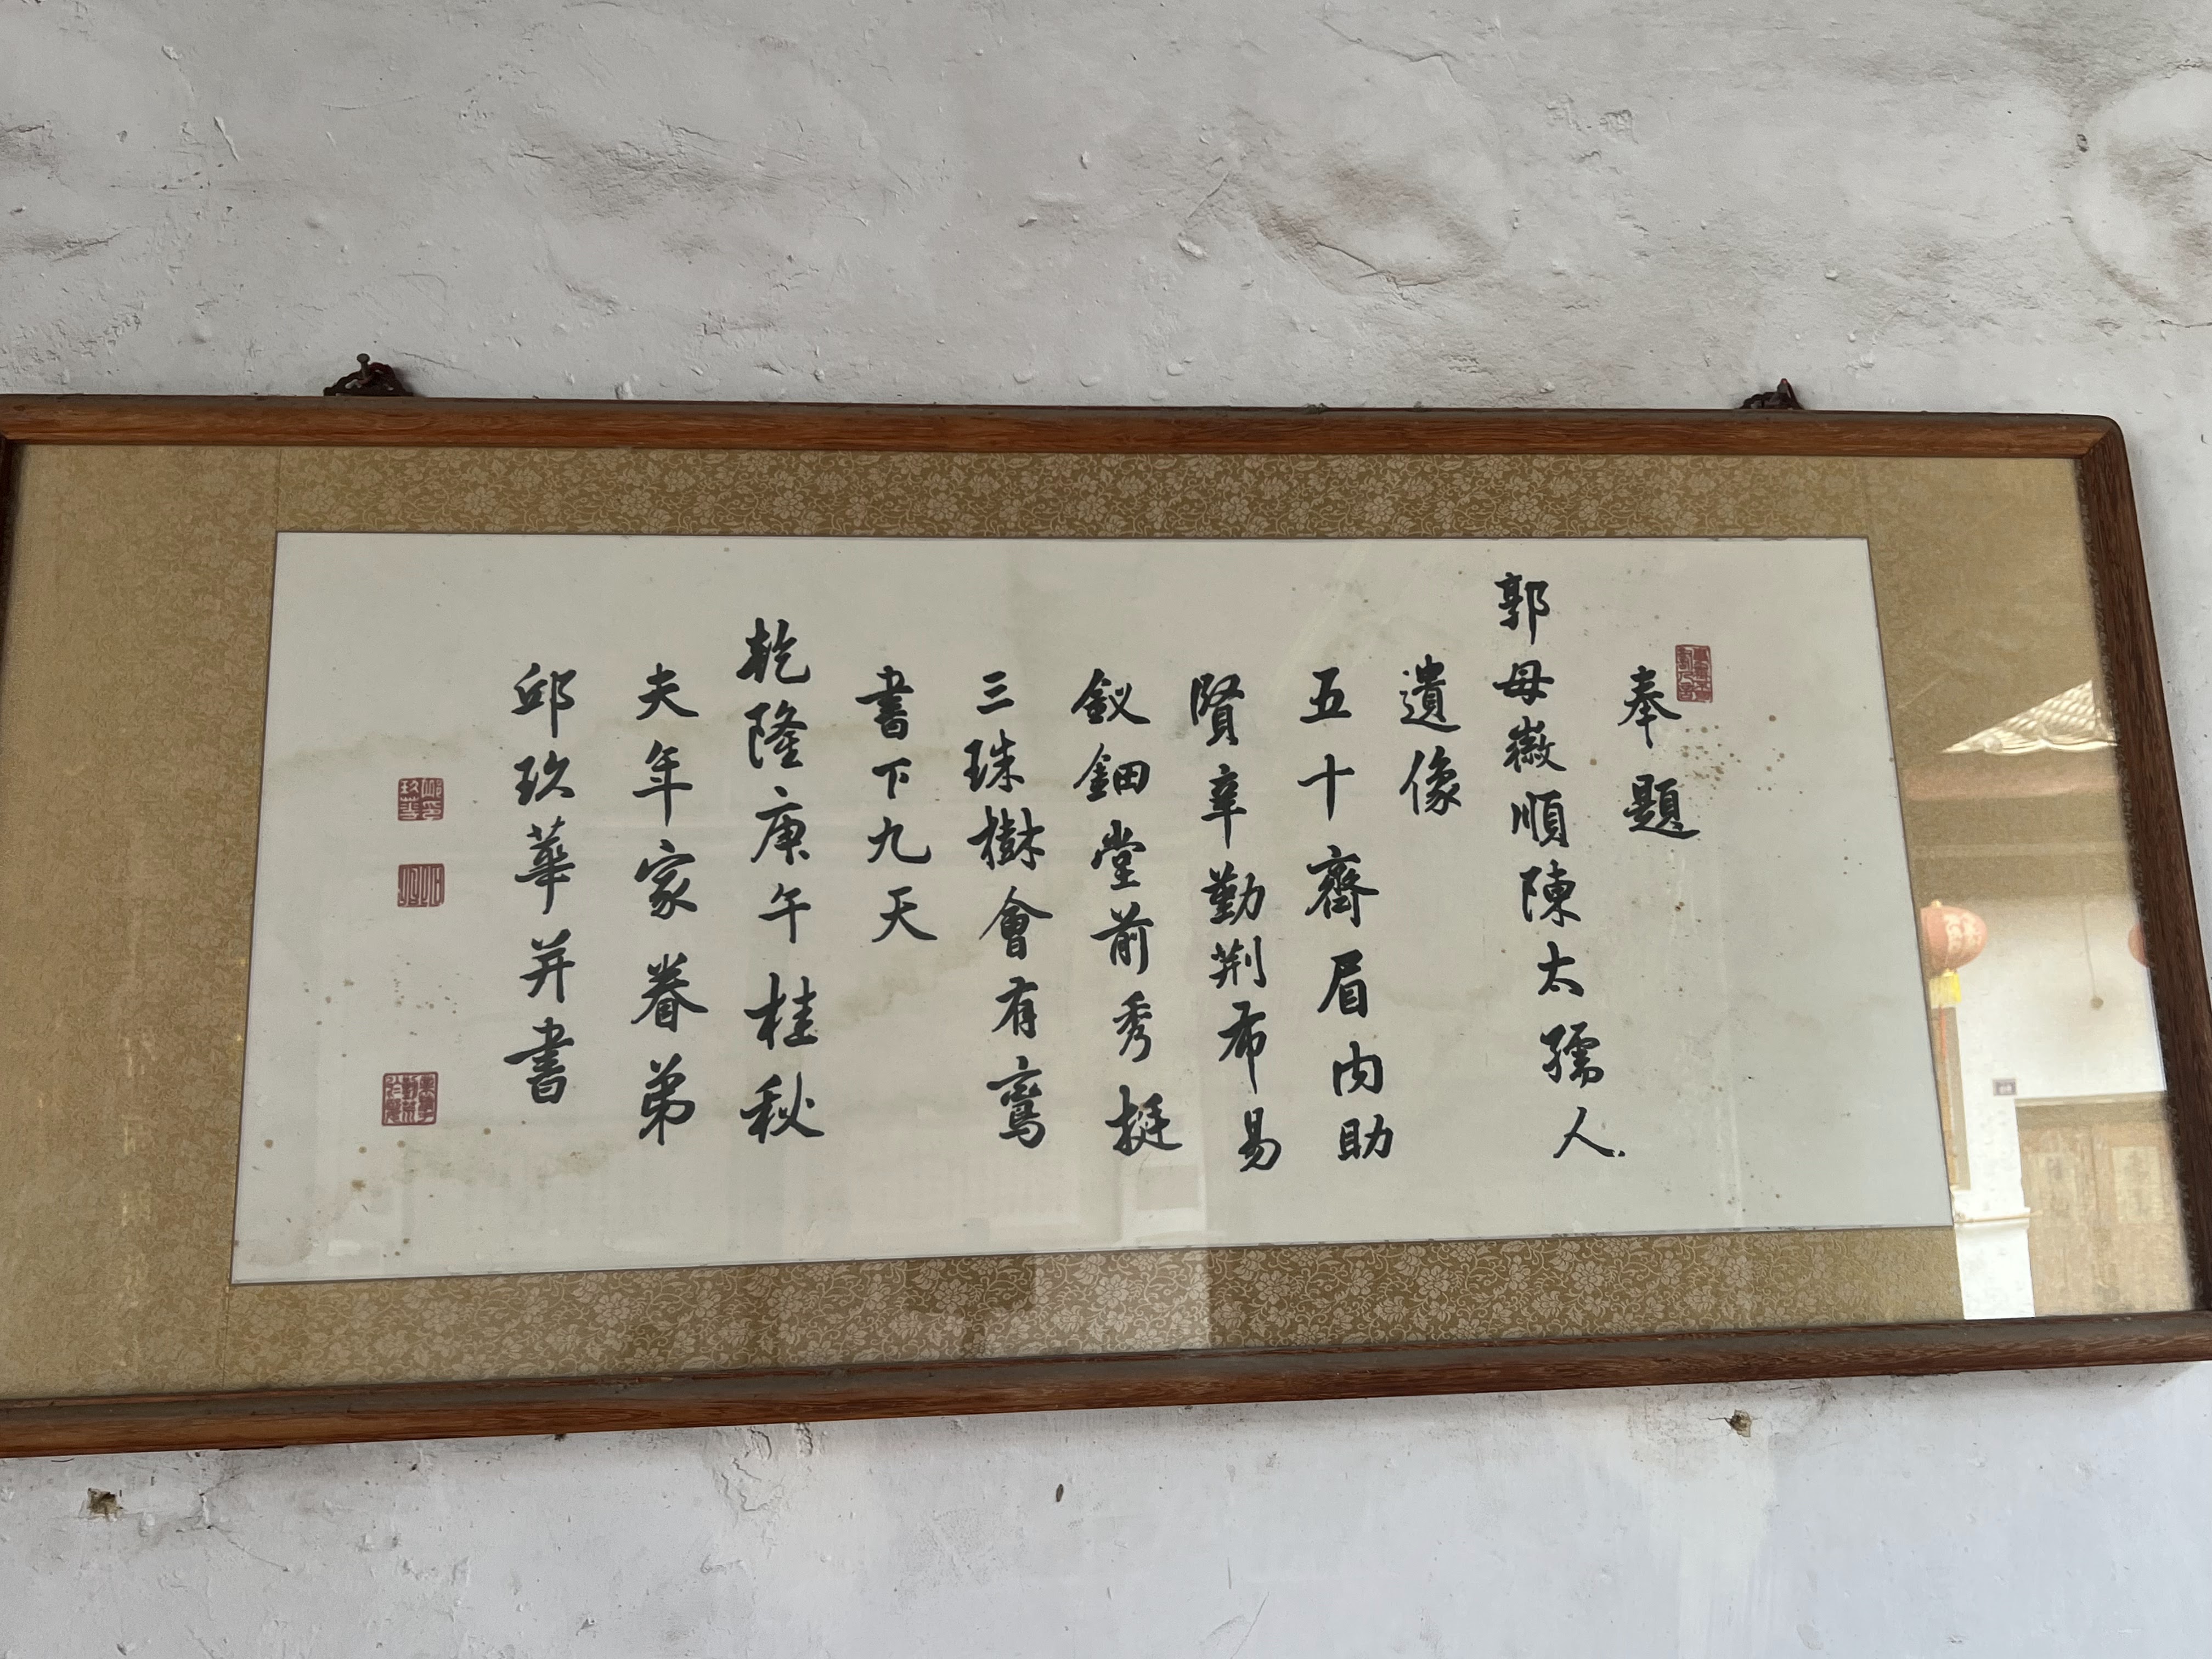 奉題
郭母徽順陳太孺人
遺像
五十齊眉内助
賢辛勤荆布易
釵鈿堂前秀挺
三珠樹會有鸞
書下九天
乾隆庚午桂秋
夫年家眷弟
邱玖華并書